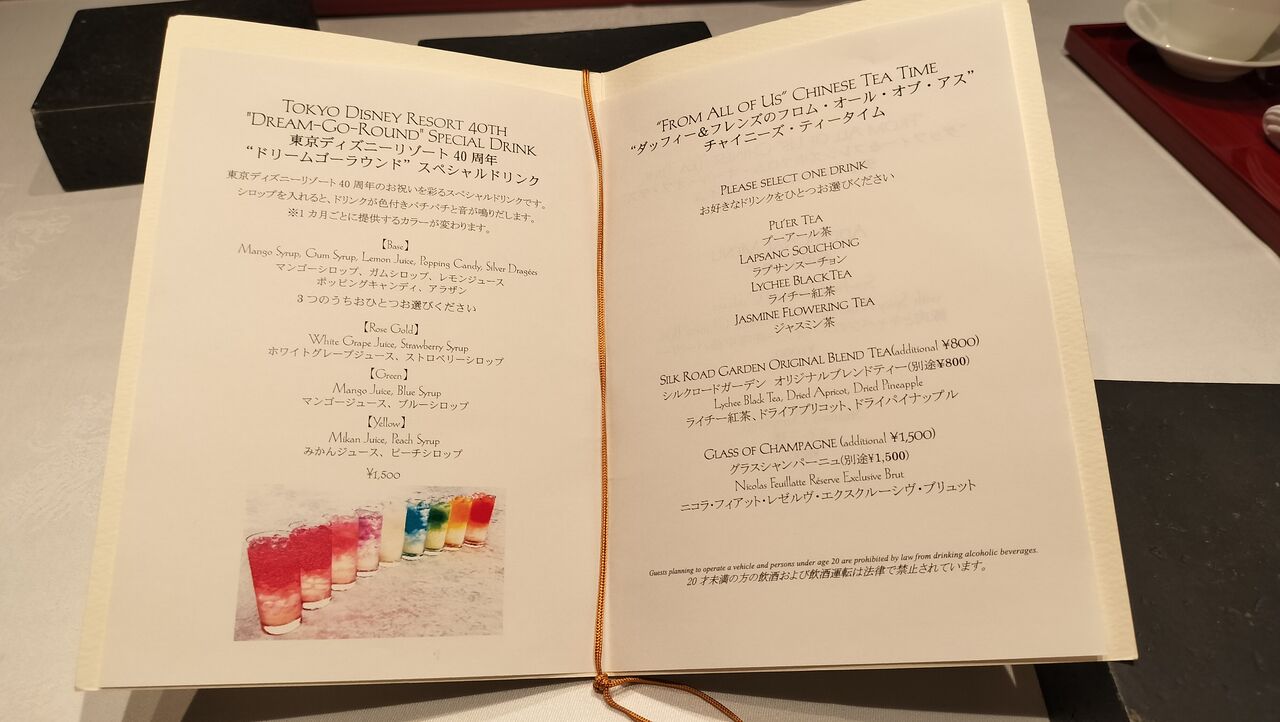 TOKYO DISNEY RESORT 40TH
"DREAM-GO-ROUND" SPECIAL DRINK
東京ディズニーリゾート 40 周年
“ドリームゴーラウンド” スペシャルドリンク
東京ディズニーリゾート 40 周年のお祝いを彩るスペシャルドリンクです。
シロップを入れると、ドリンクが色付きパチパチと音が鳴りだします。
※1 カ月ごとに提供するカラーが変わります。
【Base】
Mango Syrup, Gum Syrup, Lemon Juice, Popping Candy, Silver Dragées
マンゴーシロップ、ガムシロップ、レモンジュース
ポッピングキャンディ、アラザン
3 つのうちおひとつお選びください
【Rose Gold】
White Grape Juice, Strawberry Syrup
ホワイトグレープジュース、ストロベリーシロップ
【Green】
Mango Juice, Blue Syrup
マンゴージュース、ブルーシロップ
【Yellow】
Mikan Juice, Peach Syrup
みかんジュース、ピーチシロップ
¥1,500
“FROM ALL OF US” CHINESE TEA TIME
“ダッフィー&フレンズのフロム・オール・オブ・アス”
チャイニーズ・ティータイム
PLEASE SELECT ONE DRINK
お好きなドリンクをひとつお選びください
PU'ER TEA
プーアール茶
LAPSANG SOUCHONG
ラプサンスーチョン
LYCHEE BLACKTEA
ライチー紅茶
JASMINE FLOWERING TEA
ジャスミン茶
SILK ROAD GARDEN ORIGINAL BLEND TEA(additional ¥800)
シルクロードガーデン オリジナルブレンドティー(別途¥800)
Lychee Black Tea, Dried Apricot, Dried Pineapple
ライチー紅茶、ドライアプリコット、ドライパイナップル
GLASS OF CHAMPAGNE (additional ¥1,500)
グラスシャンパーニュ(別途¥1,500)
Nicolas Feuillatte Réserve Exclusive Brut
ニコラ・フィアット・レゼルヴ・エクスクルーシヴ・ブリュット
Guests planning to operate a vehicle and persons under age 20 are prohibited by law from drinking alcoholic beverages.
20 才未満の方の飲酒および飲酒運転は法律で禁止されています。